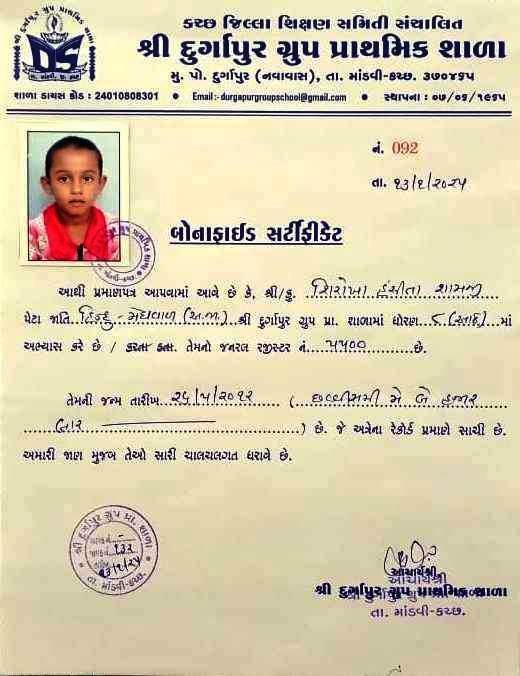 કચ્છ જિલ્લા શિક્ષણ સમિતી સંચાલિત
શ્રી દુર્ગાપુર ગ્રુપ પ્રાથમિક શાળા
મુ. પો. દુર્ગાપુર (નવાવાસ), તા. માંડવી-કચ્છ. ૩૭૦૪૬૫
શાળા ડાયસ કોડ : 24010808301 • Email:- durgapurgroupschool@gmail.com • સ્થાપના : ૦૫/૦૬/૧૯૬૫
નં. 092
તા.
બોનાફાઈડ સર્ટીફીકેટ
આથી પ્રમાણપત્ર આપવામાં આવે છે કે, શ્રી/કુ. શિરોખા હંસીતા શામજી
પેટા જાતિ હિન્દુ - મેઘવાળ (અ.જા.) શ્રી દુર્ગાપુર ગ્રુપ પ્રા. શાળામાં ધોરણ માં
અભ્યાસ કરે છે / કરતા હતા. તેમનો જનરલ રજીસ્ટર નં. ૫૫૦૦ છે.
તેમની જન્મ તારીખ ૨૬/૫/૨૦૧૨ ( છવ્વીસમી મે બે હજાર
બાર ) છે. જે અત્રેના રેકોર્ડ પ્રમાણે સાચી છે.
અમારી જાણ મુજબ તેઓ સારી ચાલચલગત ધરાવે છે.
આચાર્યશ્રી
શ્રી દુર્ગાપુર ગ્રુપ પ્રાથમિક શાળા
તા. માંડવી-કચ્છ.